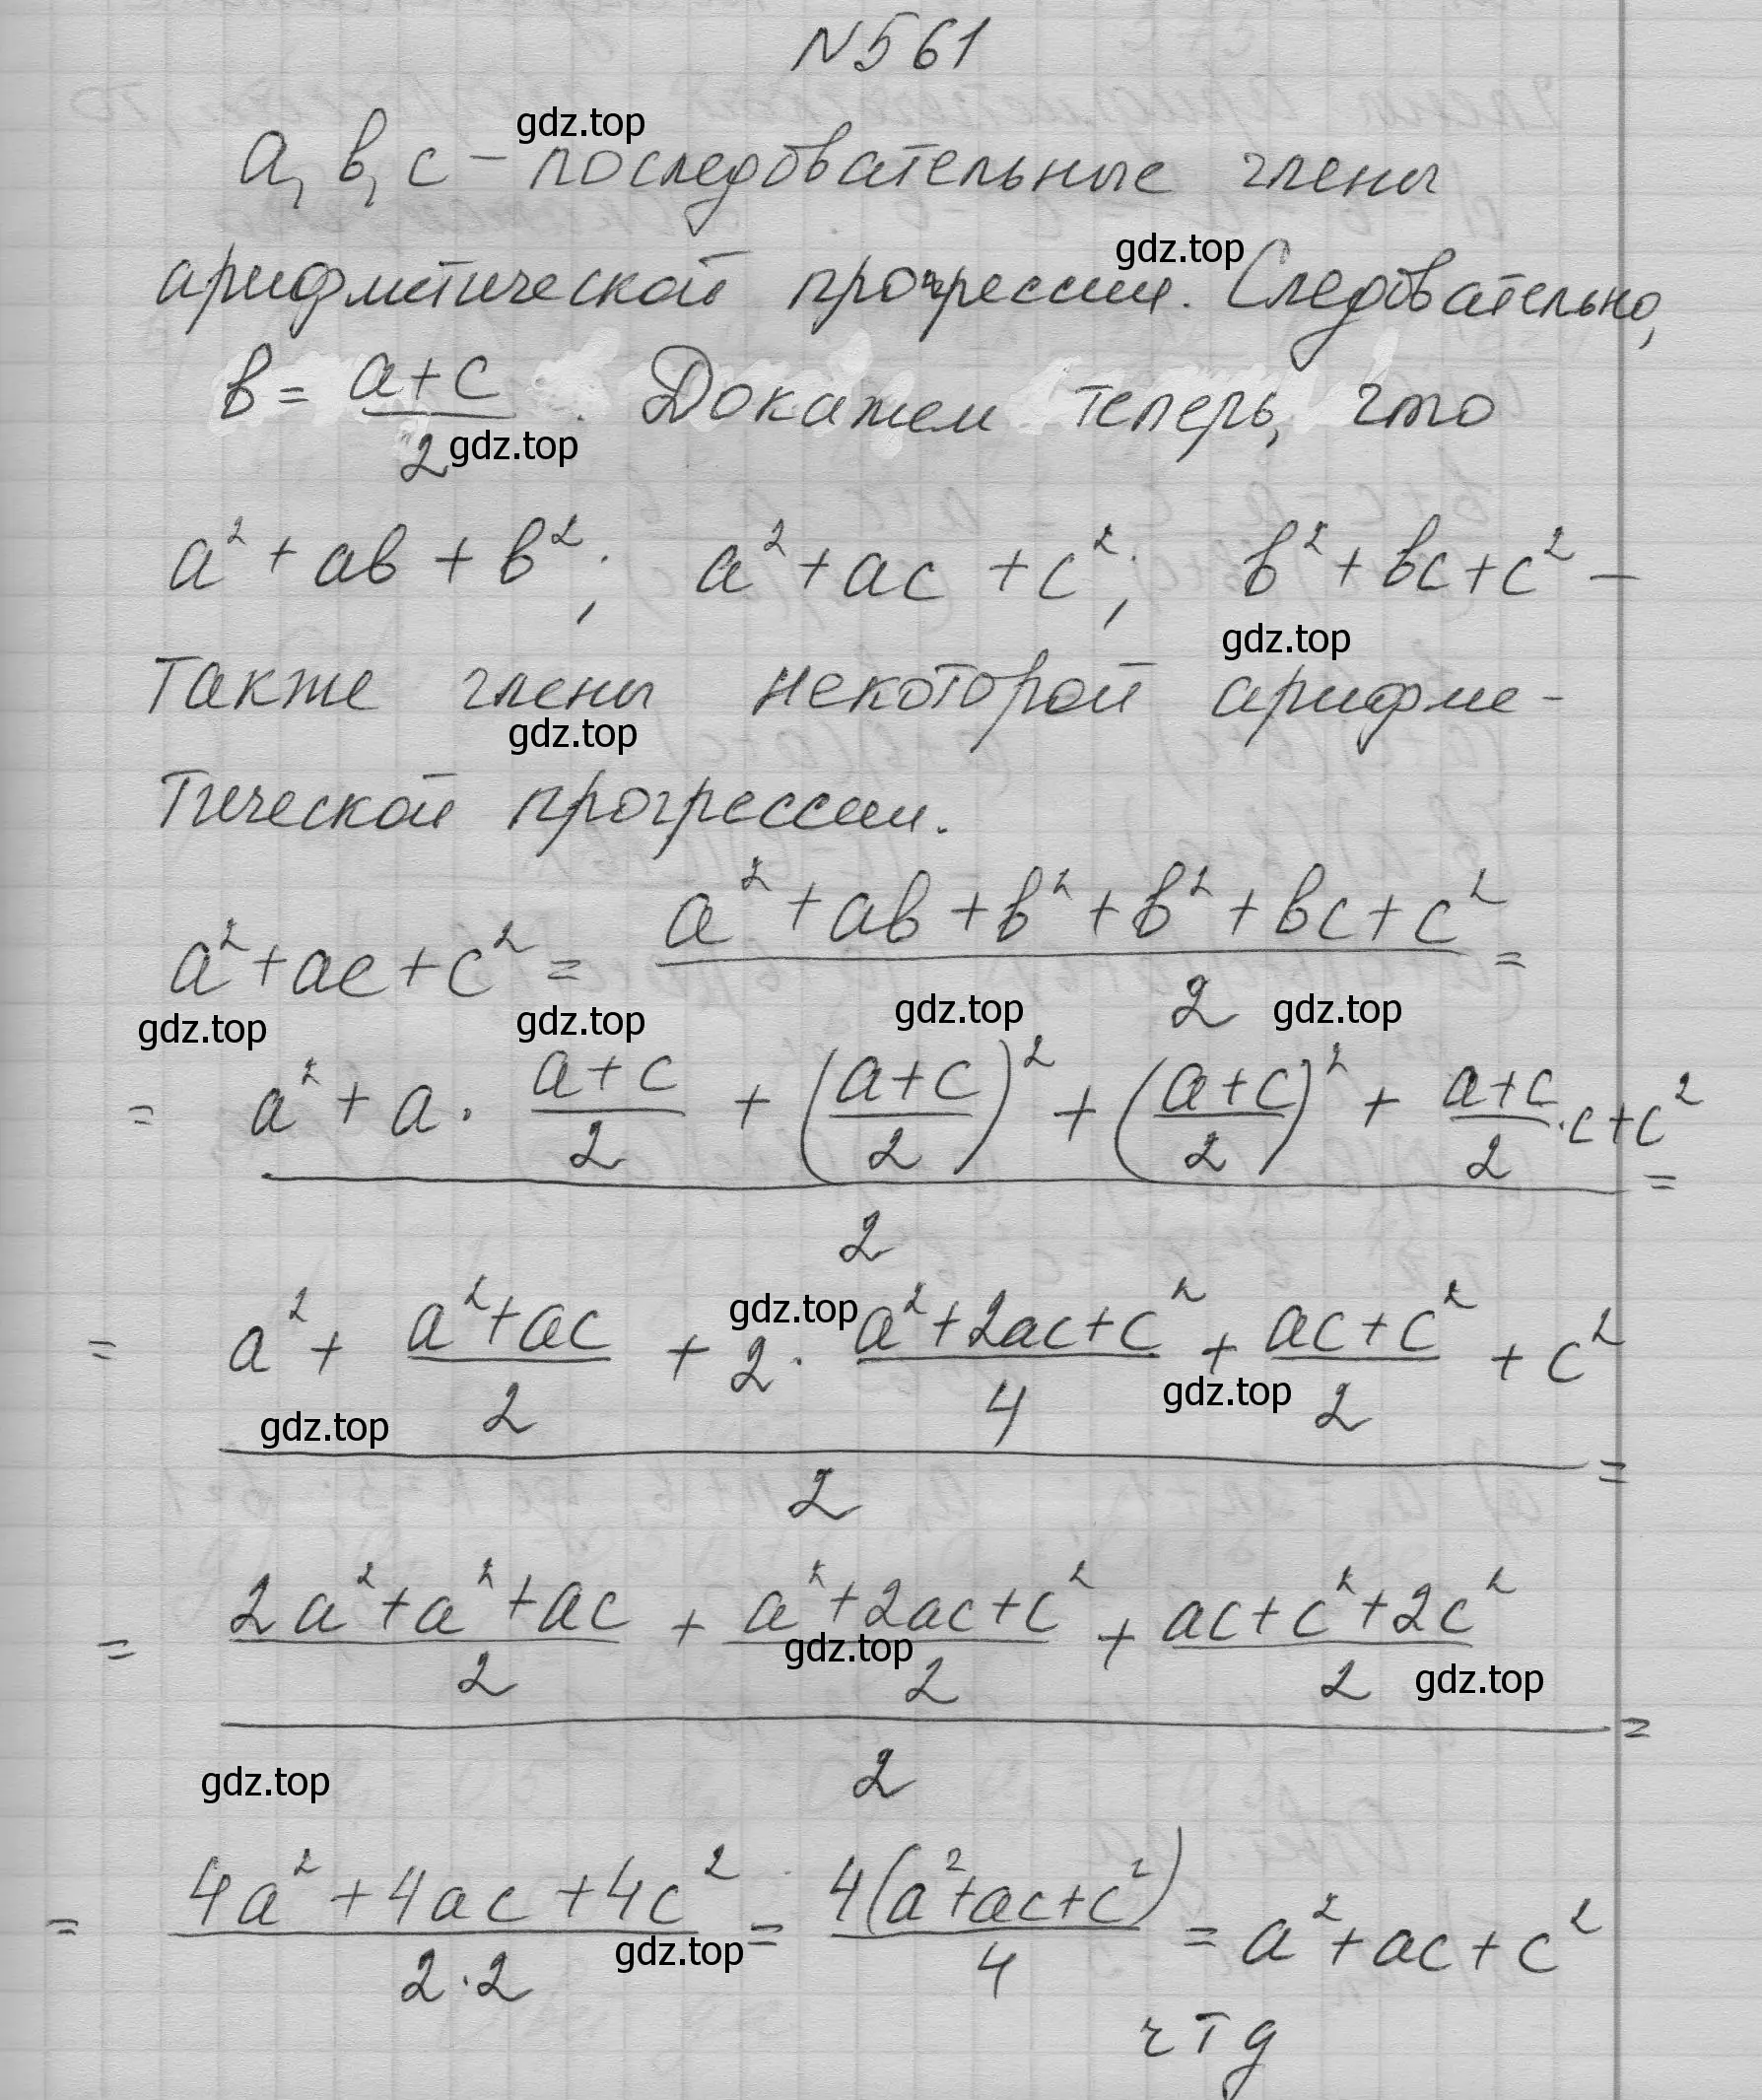 N561
gdz.top
a, b, c – последовательные члены
gdz.top
арифметической прогрессии. Следовательно,
b = (a+c)/2. Докажем теперь, что
gdz.top
a² + ab + b²; a² + ac + c²; b² + bc + c² –
gdz.top
также члены некоторой арифме-
gdz.top
тической прогрессии.
a² + ac + c² = (a² + ab + b² + b² + bc + c²)/2 =
gdz.top gdz.top gdz.top gdz.top
= (a² + a · (a+c)/2 + ((a+c)/2)² + ((a+c)/2)² + (a+c)/2 · c + c²)/2 =
gdz.top
= (a² + (a²+ac)/2 + 2 · (a²+2ac+c²)/4 + (ac+c²)/2 + c²)/2 =
gdz.top gdz.top
= ((2a²+a²+ac)/2 + (a²+2ac+c²)/2 + (ac+c²+2c²)/2)/2 =
gdz.top gdz.top
gdz.top
= (4a² + 4ac + 4c²)/(2·2) = 4(a²+ac+c²)/4 = a² + ac + c²
gdz.top
чтд